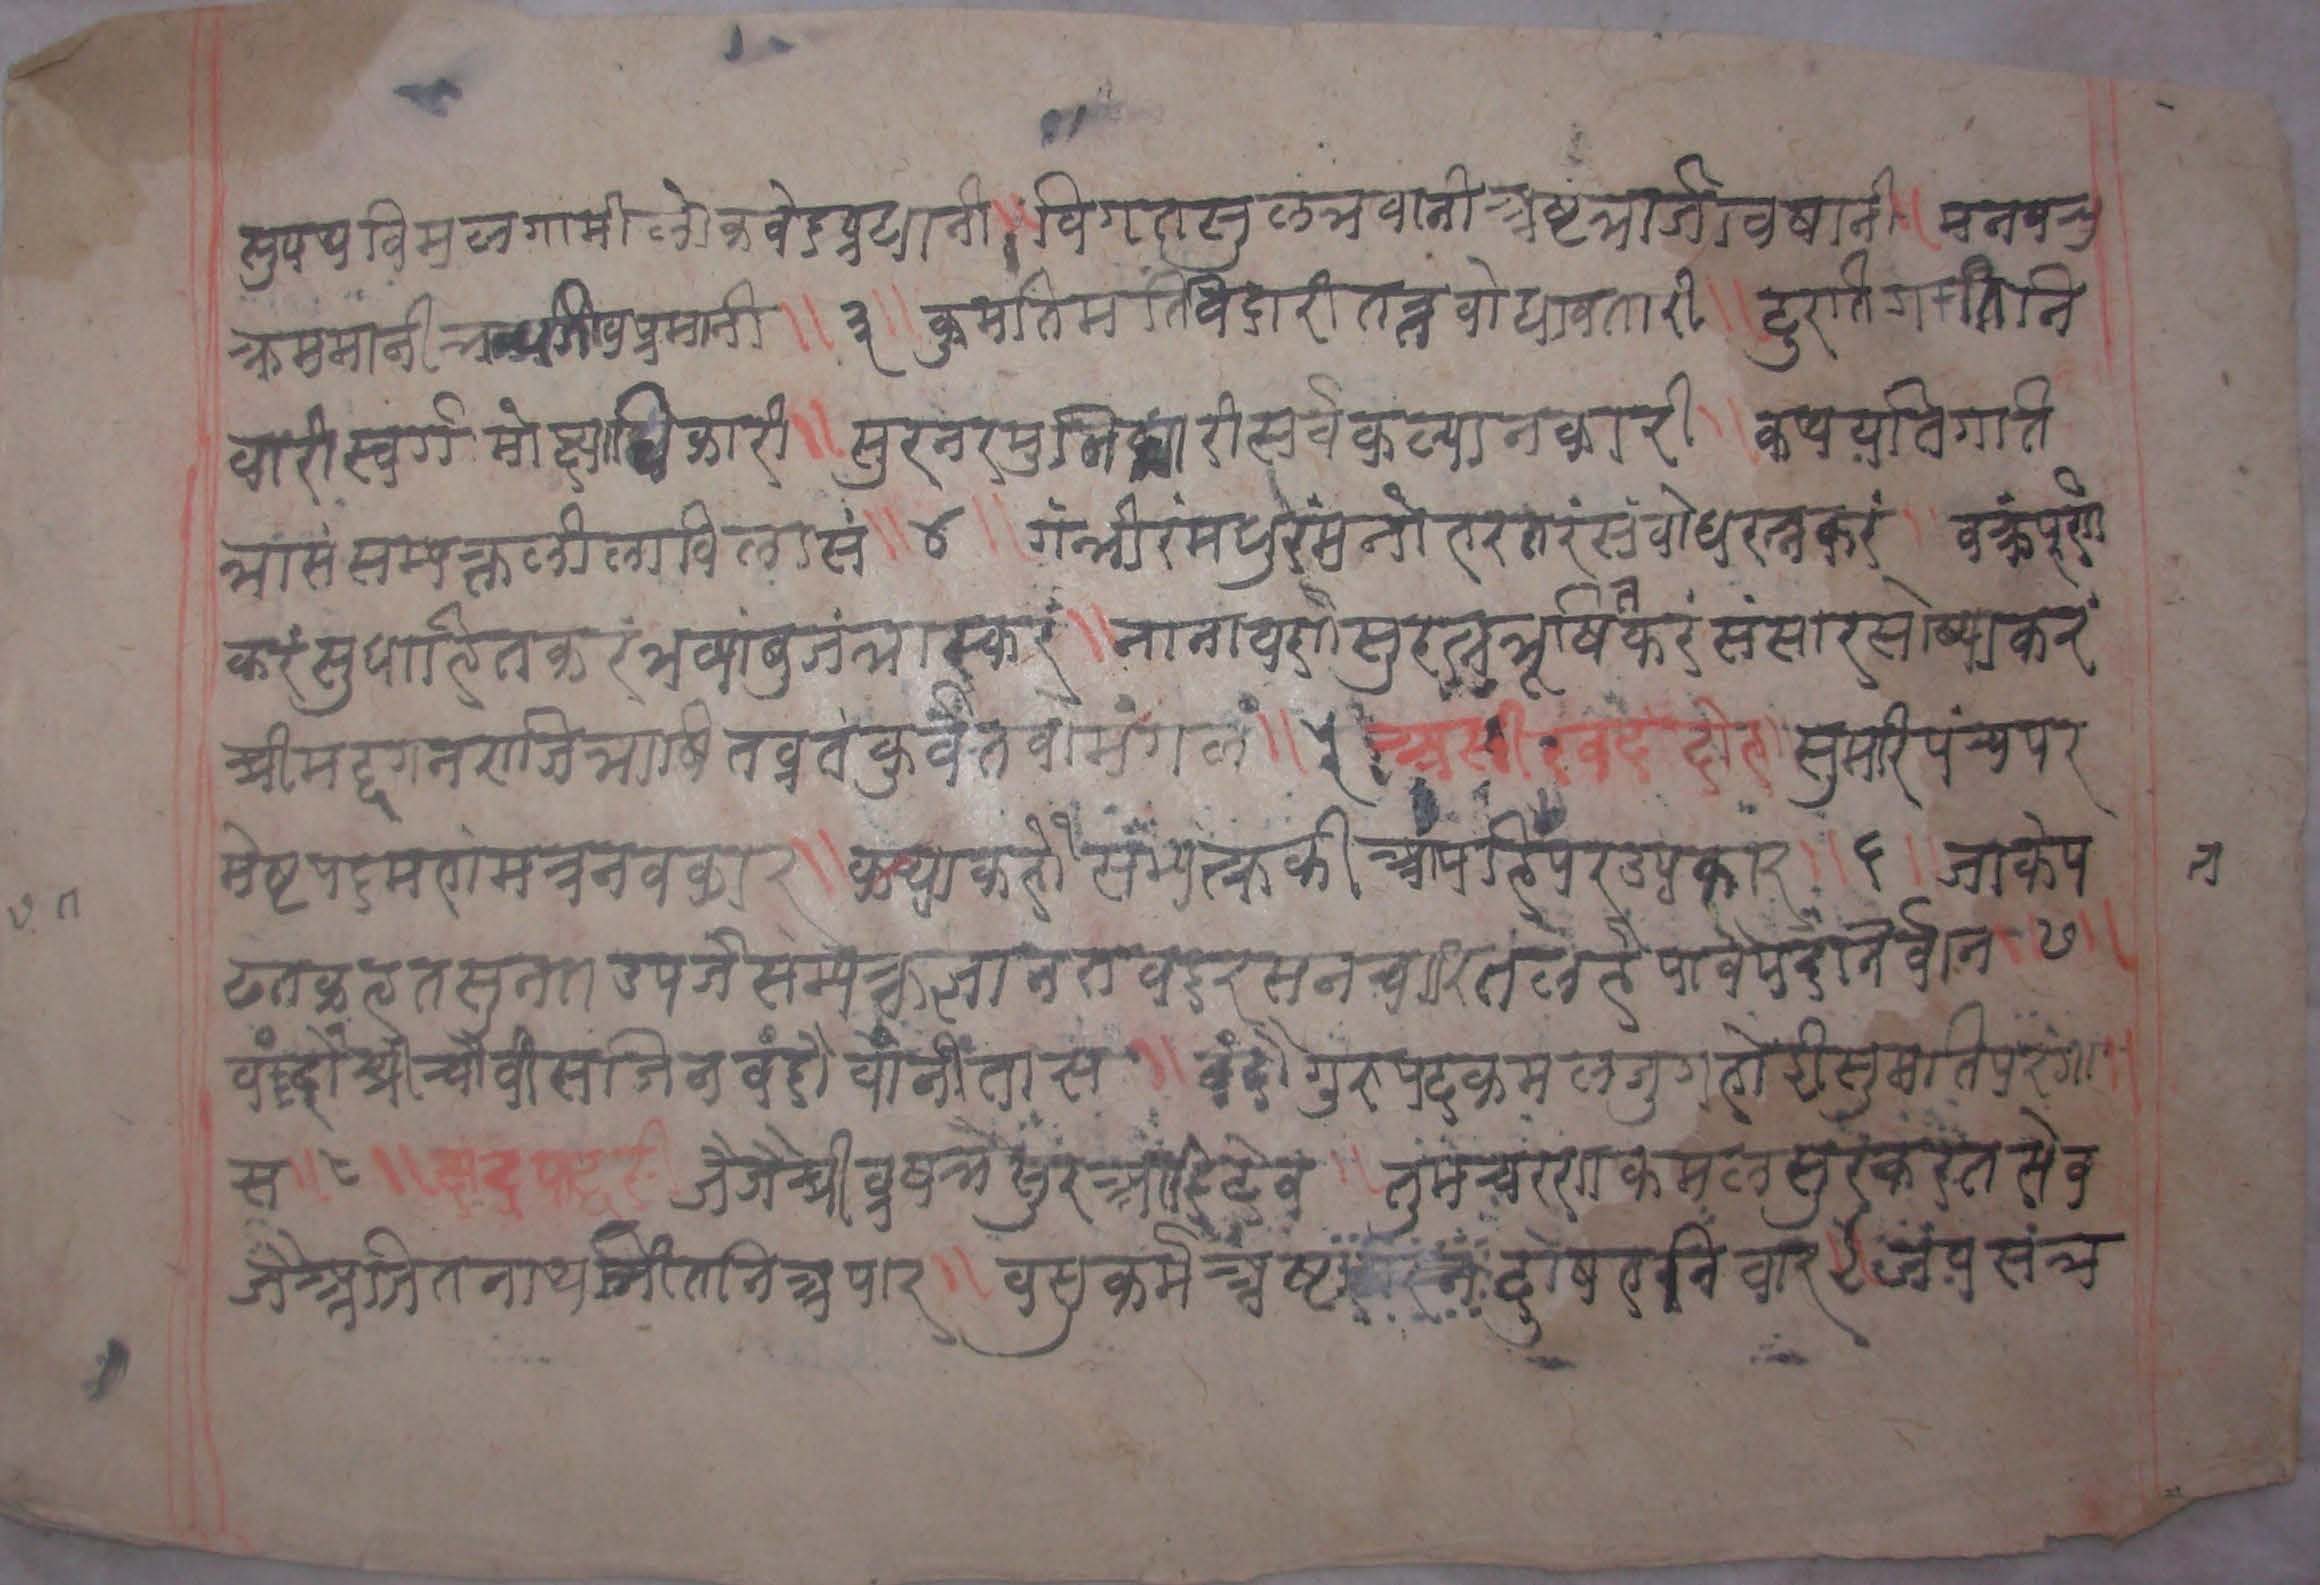 सुपथ विमल गामी लोक वेद प्रधानी ॥ विगत सु लभवानी अष्टभार्जाविषानी ॥ मनवच
क्रममानी प्रमानी ॥ ३ ॥ कुमतिमतिविदारी तत्त्वबोधावतारी ॥ दुरगति गतिनि
वारी स्वर्ग मोक्षाधिकारी ॥ सुरनरमुनि सर्वकल्यानकारी ॥ कथयति गति
भासं सम्यक्त लीलाविलासं ॥ ४ ॥ गंभीरं मधुरं मनोहरतरं संबोधरत्नकरं ॥ वक्रंपूर्ण
करं सुधाहितकरं भव्यांबुजं भास्करं ॥ नानावर्ण सुरत्नभूषितकरं संसारसोष्याकरं
श्रीमद्गनराजिभाषितव्रतं कुर्वंत वो मंगलं ॥ ५ दोहा सुमरि पंच पर
मेष्ट पद महा मंत्र नवकार ॥ कथा कहौ सम्यक्त की आपहि पर उपकार ॥ ६ ॥ जाके प
ठत कहत सुनत उपजै सम्यक्त ज्ञान तव दरसन चारित लहै पावे पद निर्वान ॥ ७ ॥
वंदौ श्री चौवीस जिन वंदौ वांनी तास ॥ वंदौ गुरु पद कमल जुग होही सुमति परगा
स ॥ ८ ॥ जै जै श्री वृषभेसुर आदिदेव ॥ तुम चरण कमल सुर करत सेव
जै अजितनाथ जीतनि अपार ॥ वसु कर्म अष्ट दोषहनि वार ९ संभ